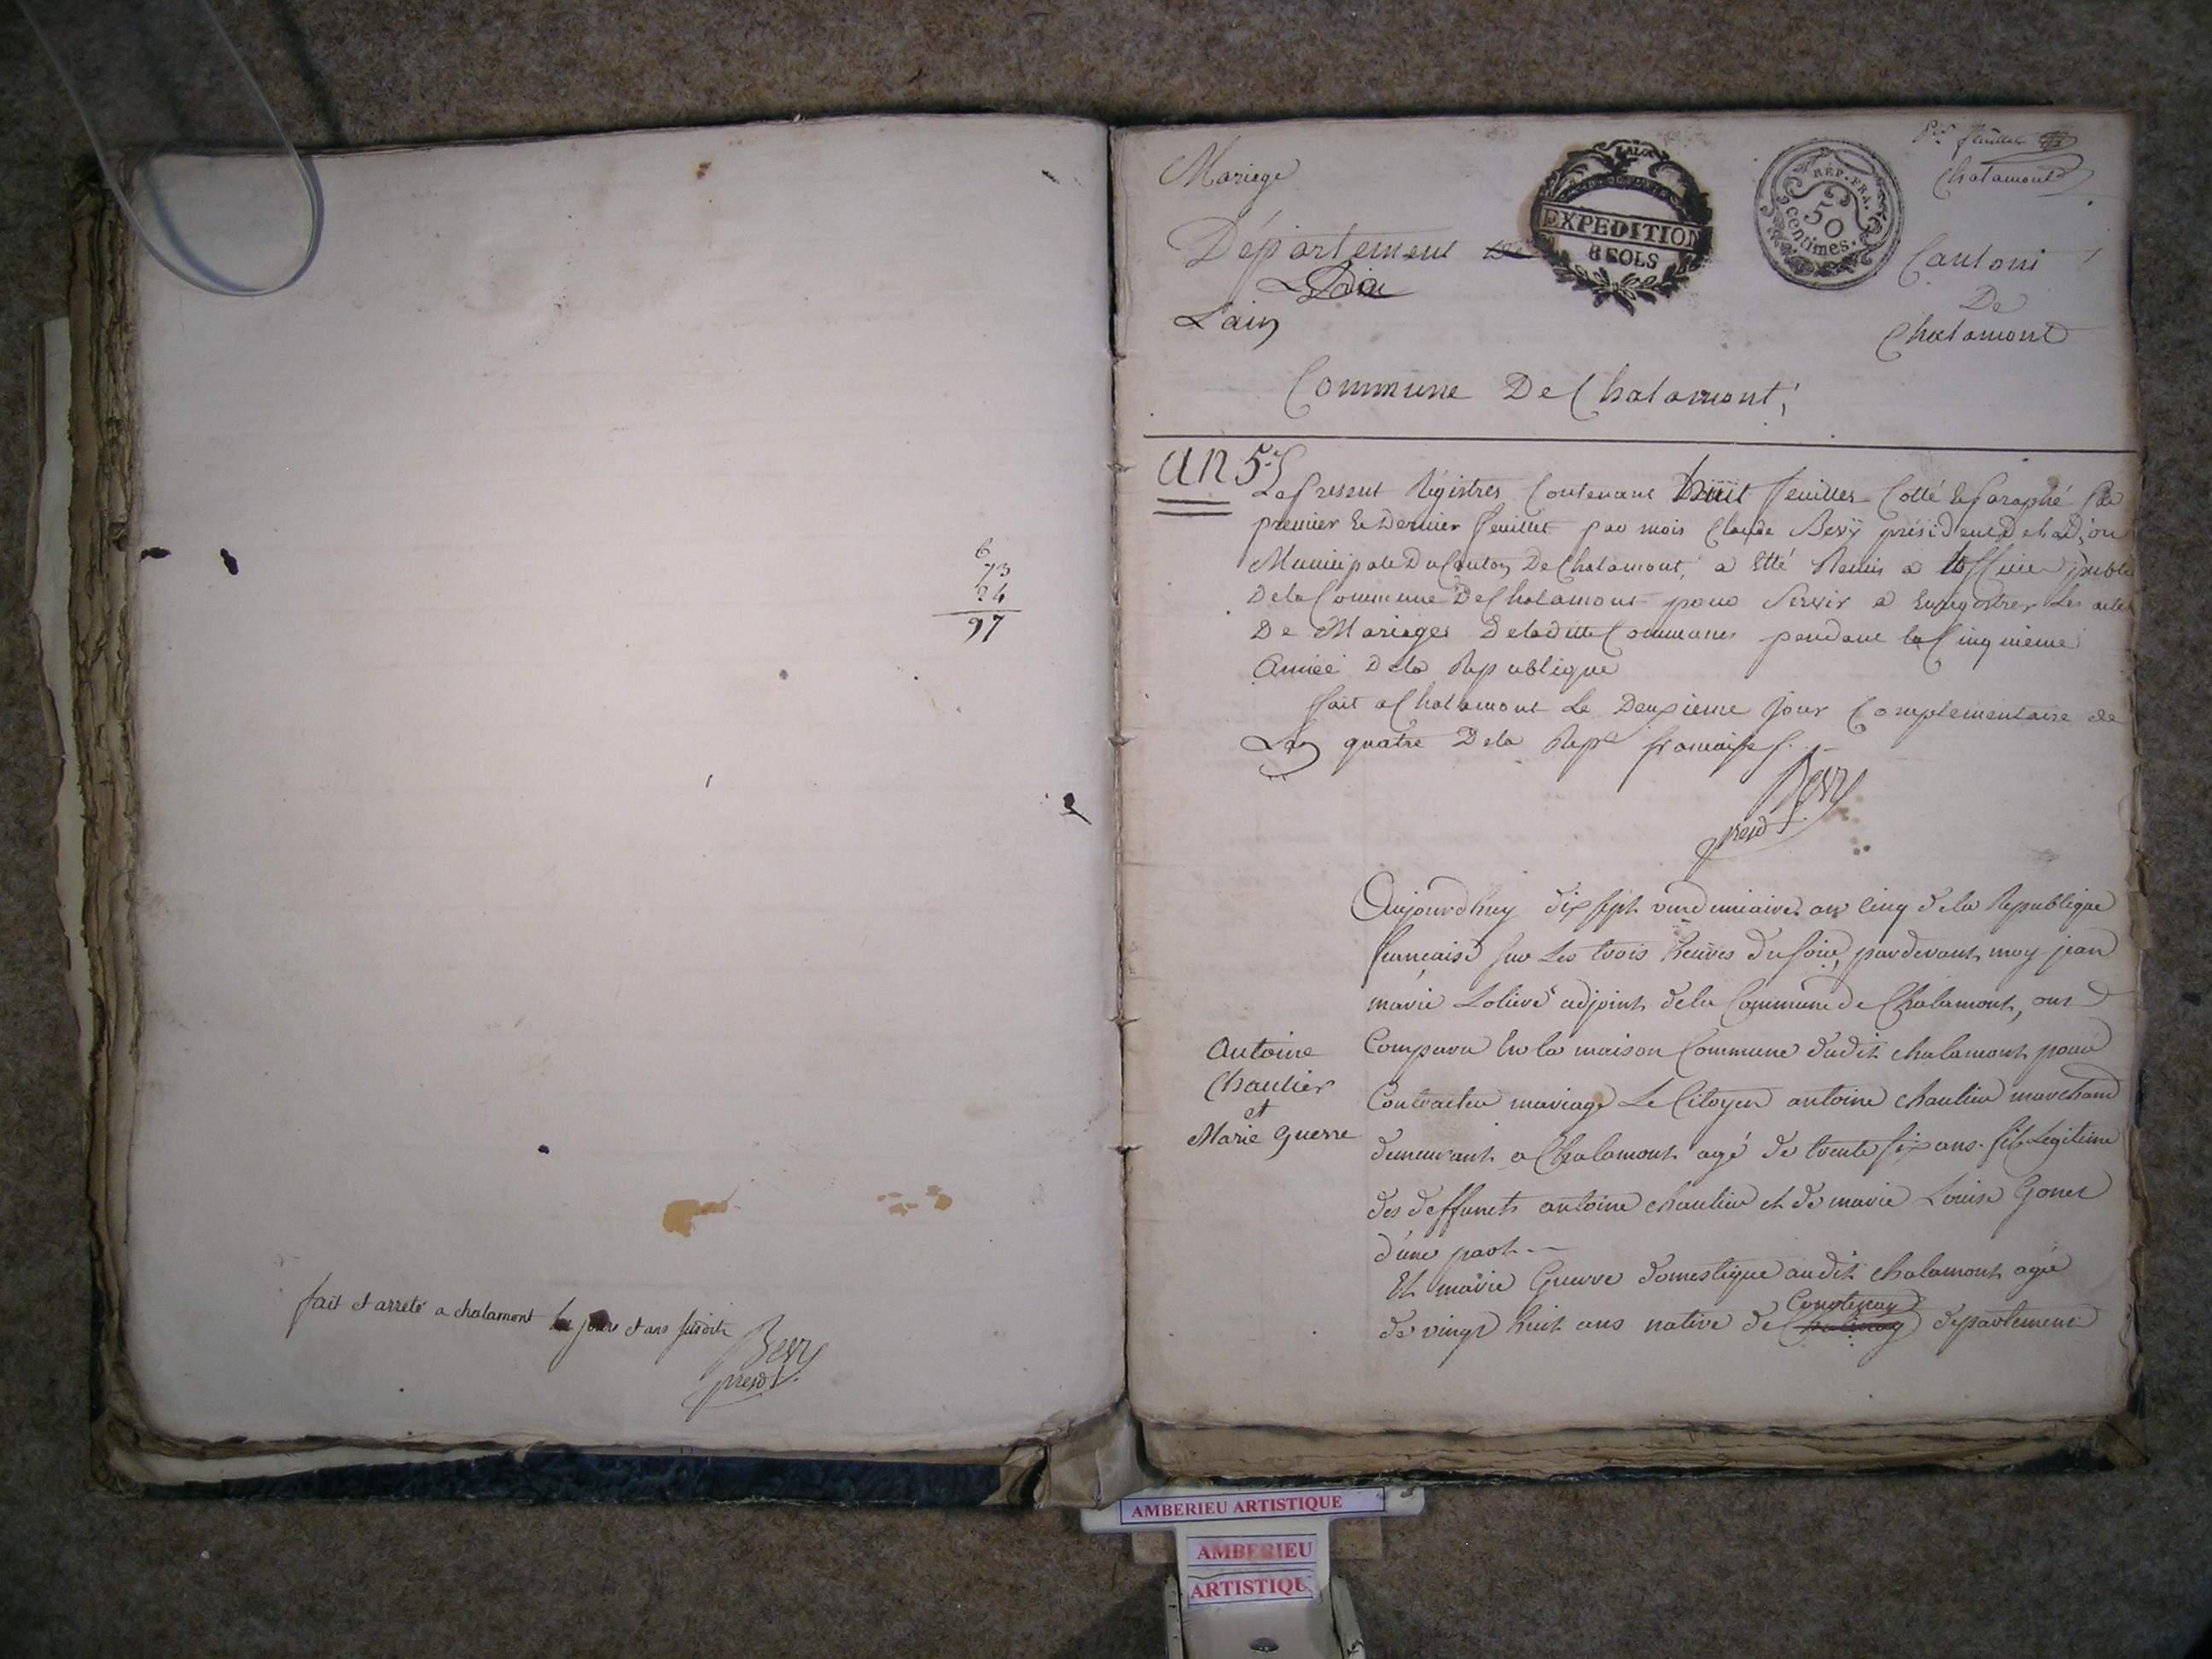 6
73
24
97
fait et arreté a chalamont les jours et ans susdits
Bevy
presdt.
Mariege
EXPEDITION
8 SOLS
REP. FRA.
50
centimes.
1er feuillet
Chalamont
Département de
L'ain
Canton
De
Chalamont
Commune De Chalamont
an 5e
Le present Régistres Contenant huit feuilles Cotté et Paraphé Par
premier et Dernier feuillet par mois Claude Bevÿ président De l'ad.on
Municipale Du Canton De Chalamont, a Etté Remis a l'officier public
De la Commune De Chalamont pour Servir a Enregistrer Les actes
De Mariages De la ditte Commune pendant la Cinquieme
Année De la Republique
fait a Chalamont Le Deuxieme Jour Complementaire de
Lan quatre De la Repe francaise
Bevy
presdt
Aujourdhuy dix sept vendemiaire an cinq de la Republique
francaise sur Les trois heures du soir, pardevant moy jean
marie Loliere adjoint de la Commune de Chalamont, ont
Comparu En la maison Commune dudit chalamont pour
Contracter mariage Le Citoyen antoine chautier marchand
demeurant a Chalamont agé de trente six ans fils Legitime
des deffunts antoine chautier et de marie Louise Gonet
d'une part
Antoine
Chautier
et
Marie Guerre
Et marie Guerre domestique audit chalamont agée
de vingt huit ans native de Courtenay departement
AMBERIEU ARTISTIQUE
AMBERIEU
ARTISTIQU